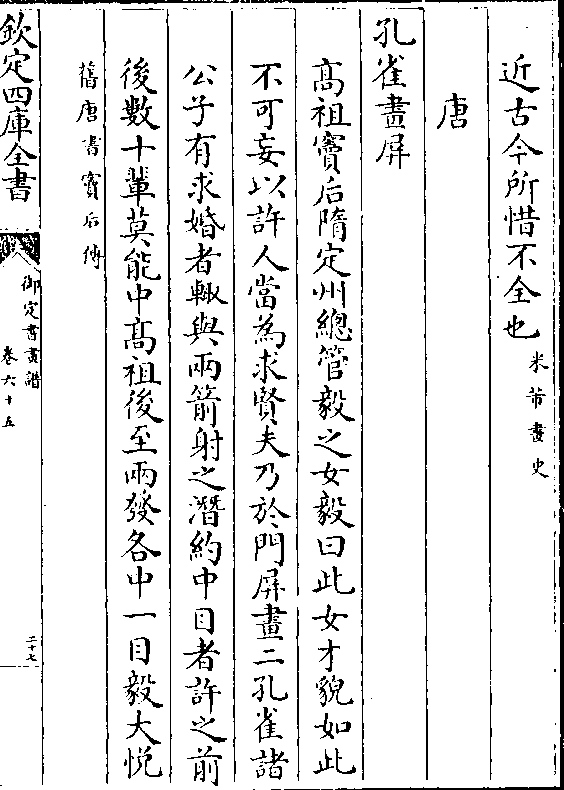 近古今所惜不全也米芾畫史
唐
孔雀畫屏
髙祖竇后隋定州總管毅之女毅曰此女才貌如此
不可妄以許人當為求賢夫乃於門屏畫二孔雀諸
公子有求婚者輙與兩箭射之潛約中目者許之前
後數十輩莫能中髙祖後至兩發各中一目毅大悦
舊唐書竇后傳
欽定四庫全書
御定書畫譜
卷六十五
二十七